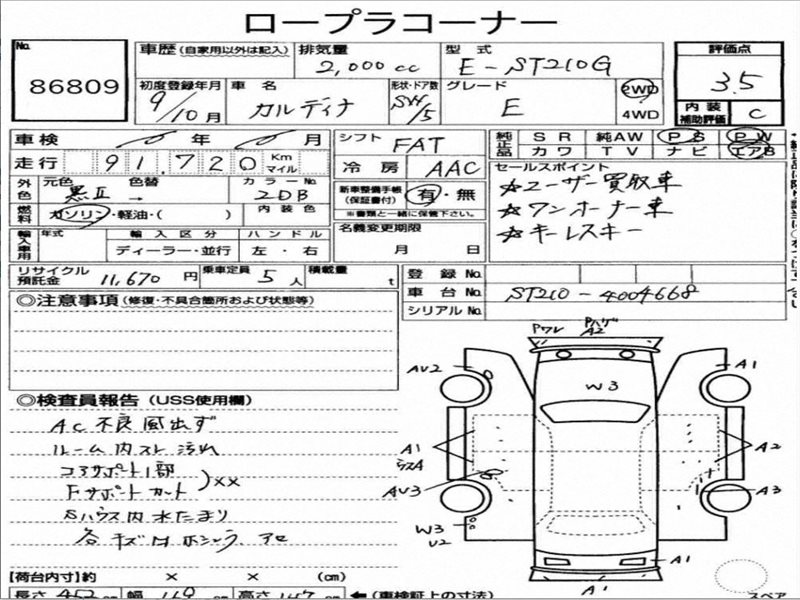 ロープラコーナー
No.
86809
車歴 (自家用以外は記入)
排気量
2,000 cc
型式
E-ST210G
評価点
3.5
内装
補助評価
C
初度登録年月
9/10月
車名
カルディナ
形状・ドア数
SW/5
グレード
E
2WD
4WD
車検
年
月
シフト
FAT
純正品
SR 純AW PS PW
カワ TV ナビ エアB
走行
91,720
Km
マイル
冷房
AAC
セールスポイント
☆ユーザー買取車
☆ワンオーナー車
☆キーレスキー
外色
元色
黒II
色替
→
カラーNo.
2DB
新車整備手帳
(保証書付)
有・無
※書類と一緒に保管下さい。
燃料
ガソリン・軽油・( )
内装色
輸入車用
年式
輸入区分
ディーラー・並行
ハンドル
左・右
名義変更期限
月 日
リサイクル
預託金
11,670 円
乗車定員
5 人
積載量
t
登録No.
車台No.
ST210-4004668
シリアルNo.
◎注意事項 (修復・不具合個所および状態等)
◎検査員報告 (USS使用欄)
AC不良 風出ず
ルーム内スレ 汚れ
コアサポート1部
Fサポートカット
)××
Sハウス内水たまり
各キズ凹
Pワレ
Pハゲ
A2
AU2
A1
W3
A1
A2
AU3
A3
W3
U2
A1
A1
スペア
【荷台内寸】約 × × (cm)
長さ 452
幅 169
高さ 147
← (車検証上の寸法)